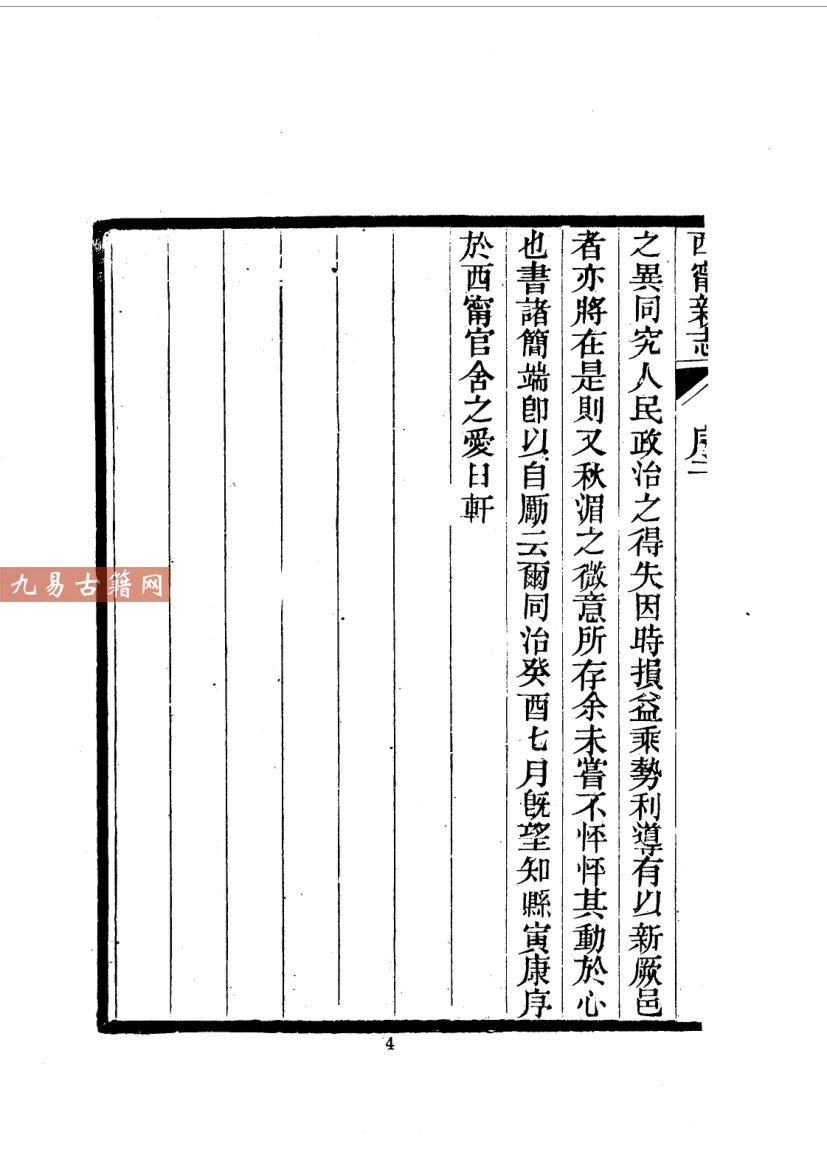 西甯新志 序 二
之異同究人民政治之得失因時損益乘勢利導有以新厥邑
者亦將在是則又秋湄之微意所存余未嘗不怦怦其動於心
也書諸簡端卽以自勵云爾同治癸酉七月旣望知縣寅康序
於西甯官舍之愛日軒
九易古籍网
4